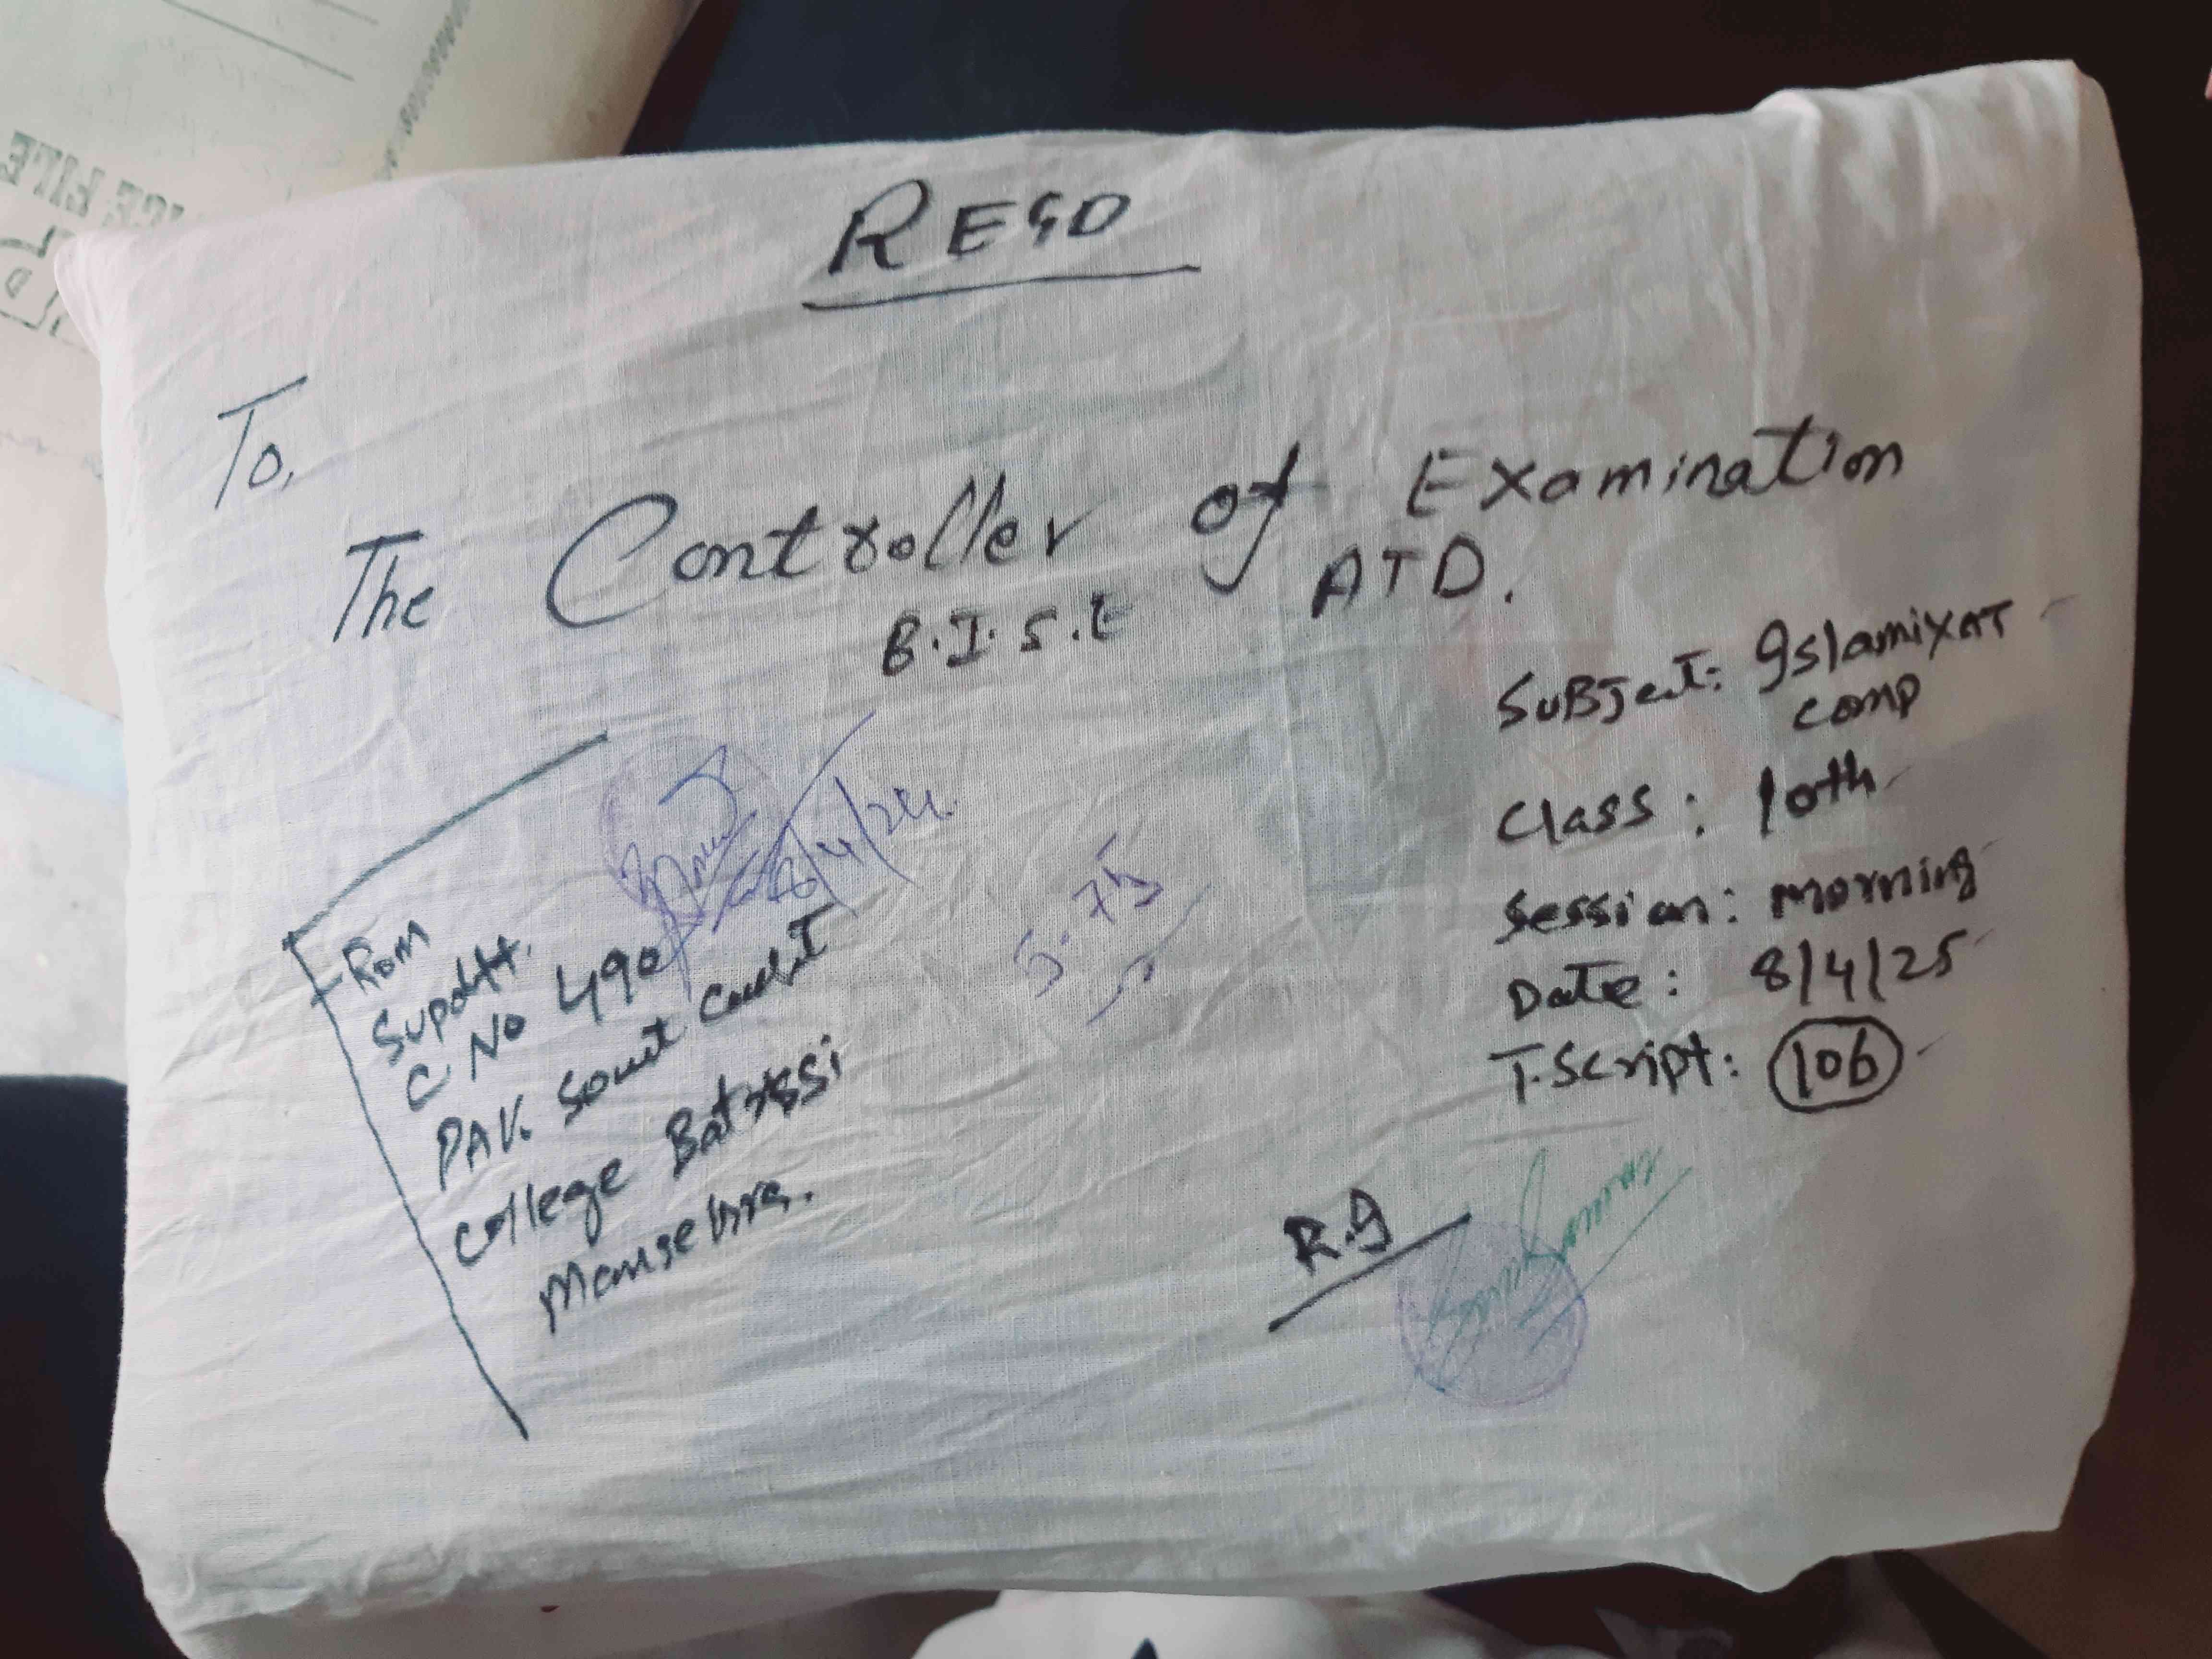 REGD
To,
The Controller of Examination
B.I.S.E ATD.
SUBJect: IslamiyAT
comp
Class: 10th
Session: Morning
Date: 8/4/25
T.Script: 106
FRom
Supdtt.
C No 490
PAK. Scout Cadet
College Batrssi
Mansehra.
5.75
R.I